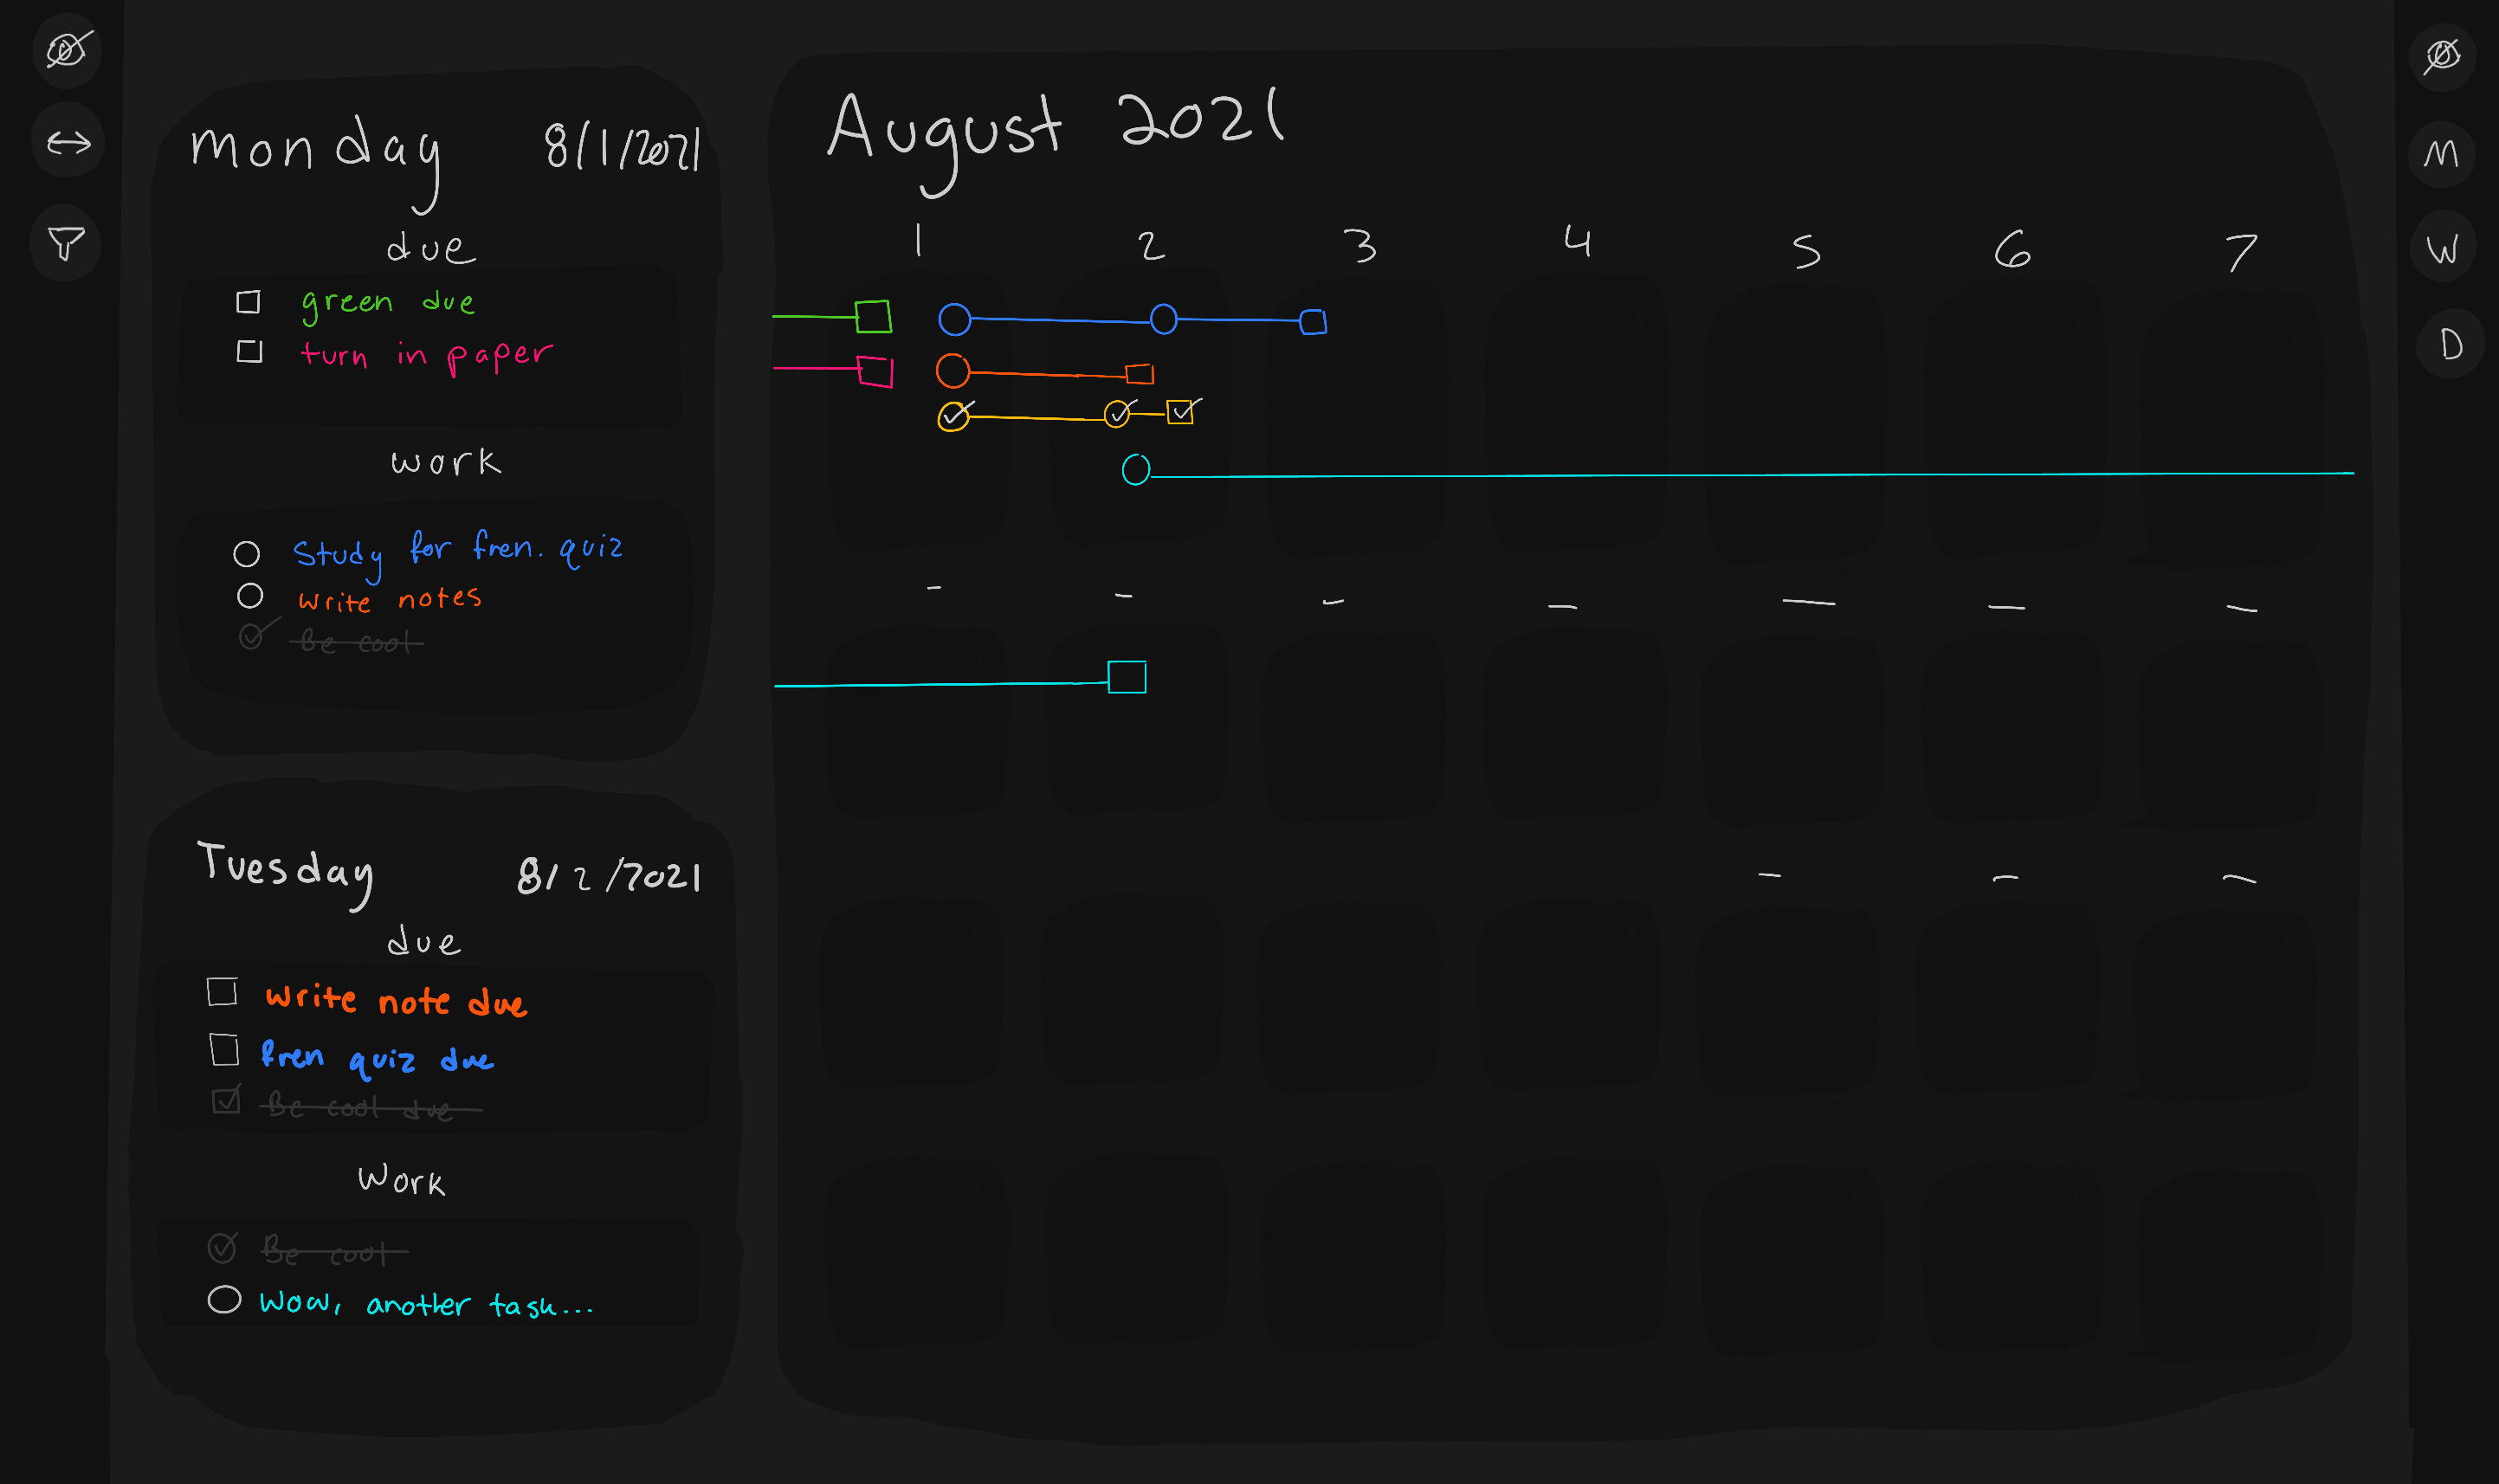 Monday 8/1/2021
due
green due
turn in paper
work
Study for fren. quiz
write notes
Be cool
Tuesday 8/2/2021
due
write note due
fren quiz due
Be cool due
Work
Be cool
Wow, another task...
August 2021
1 2 3 4 5 6 7
- - - - - - -
- - -
M
W
D